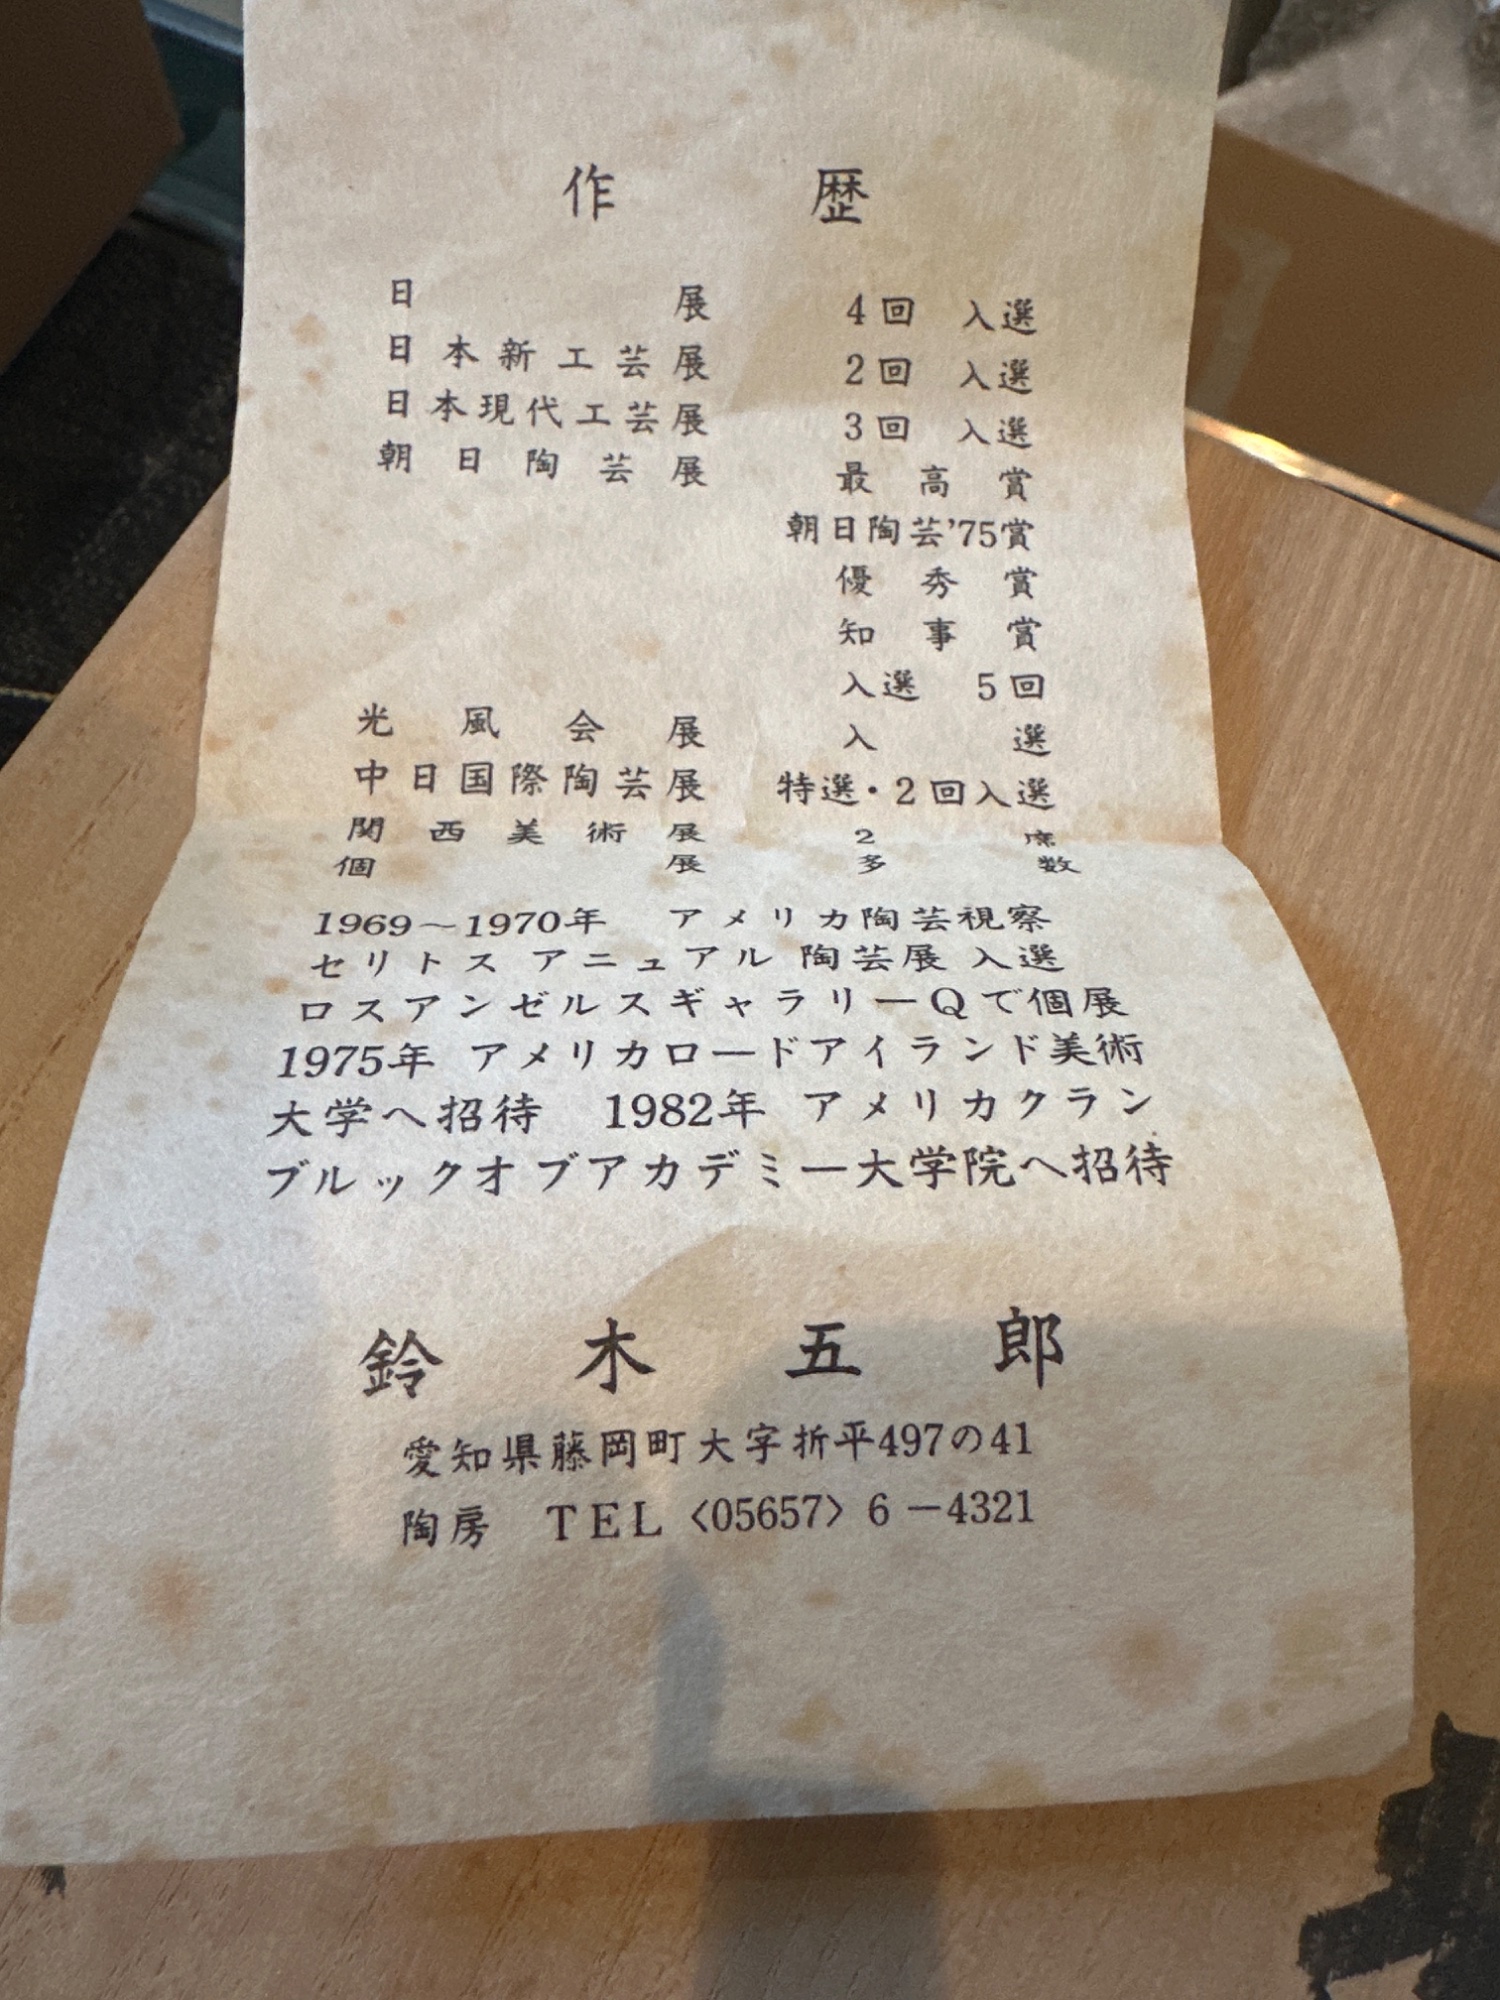 作歴
日展 4回 入選
日本新工芸展 2回 入選
日本現代工芸展 3回 入選
朝日陶芸展 最高賞
朝日陶芸'75賞
優秀賞
知事賞
入選 5回
光風会展 入選
中日国際陶芸展 特選・2回入選
関西美術展 2席
個展 多数
1969～1970年 アメリカ陶芸視察
セリトス アニュアル 陶芸展 入選
ロスアンゼルスギャラリーQで個展
1975年 アメリカロードアイランド美術
大学へ招待 1982年 アメリカクラン
ブルックオブアカデミー大学院へ招待
鈴木五郎
愛知県藤岡町大字折平497の41
陶房 TEL〈05657〉6－4321